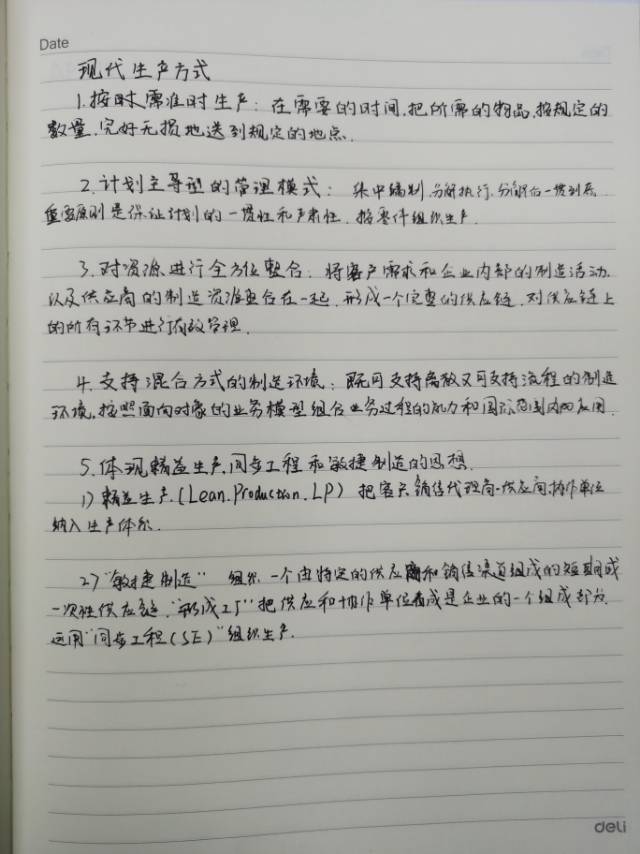 Date
现代生产方式
1.按时需准时生产：在需要的时间,把所需的物品,按规定的
数量,完好无损地送到规定的地点.
2.计划主导型的管理模式：集中编制,分解执行,分解后一贯到底
重要原则是保证计划的一惯性和严肃性.按零件组织生产.
3.对资源进行全方位整合.将客户需求和企业内部的制造活动.
以及供应商的制造资源整合在一起.形成一个完整的供应链.对供应链上
的所有环节进行有效管理.
4.支持混合方式的制造环境：既可支持离散又可支持流程的制造
环境,按照面向对象的业务模型组合业务过程的能力和国际范围内的应用.
5.体现精益生产,同步工程和敏捷制造的思想.
1)精益生产.(Lean.Production.LP) 把客户.销售代理商.供应商,协作单位
纳入生产体系.
2)"敏捷制造" 组织一个由特定的供应商和销售渠道组成的短期或
一次性供应链."形成工厂"把供应和协作单位看成是企业的一个组成部分
运用"同步工程(SE)"组织生产.
deli